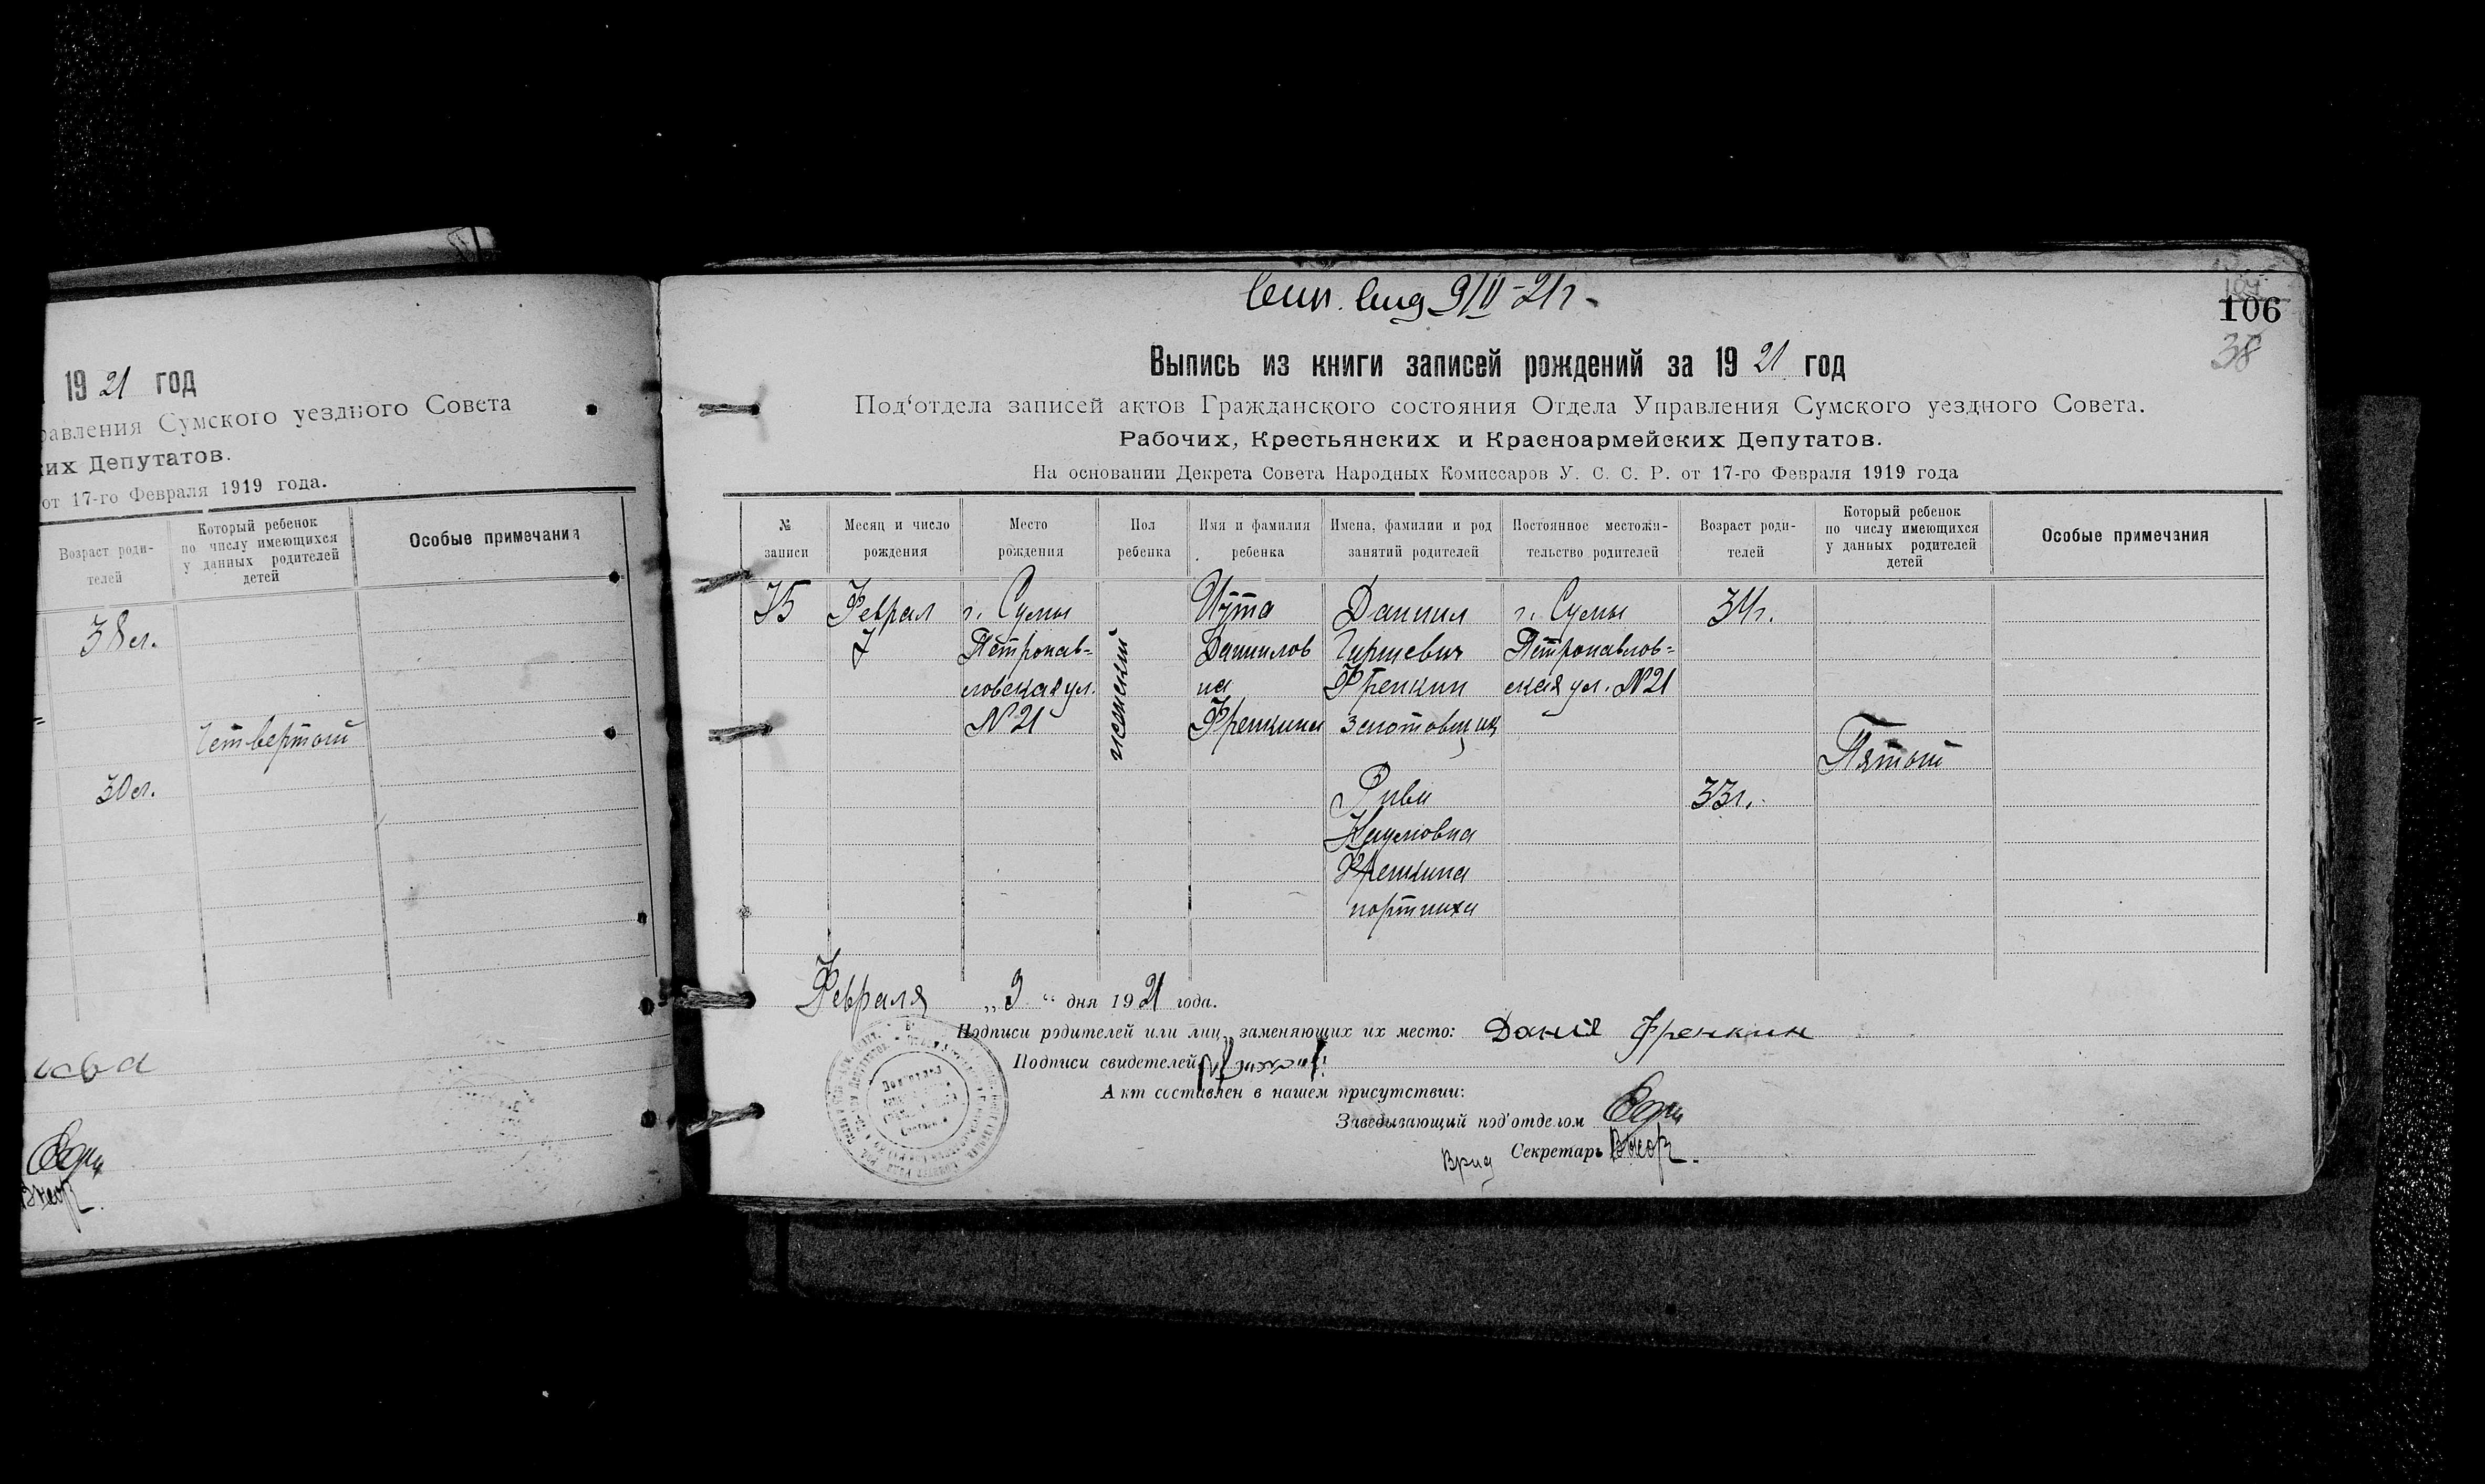 19 21 год
равления Сумского уездного Совета
их Депутатов.
от 17-го Февраля 1919 года.
Возраст роди-
телей
Который ребенок
по числу имеющихся
у данных родителей
детей
Особые примечания
38 л.
Четвертый
30 л.
106
38
Выпись из книги записей рождений за 19 21 год
Под'отдела записей актов Гражданского состояния Отдела Управления Сумского уездного Совета.
Рабочих, Крестьянских и Красноармейских Депутатов.
На основании Декрета Совета Народных Комиссаров У. С. С. Р. от 17-го Февраля 1919 года
№
записи
Месяц и число
рождения
Место
рождения
Пол
ребенка
Имя и фамилия
ребенка
Имена, фамилии и род
занятий родителей
Постоянное местожи-
тельство родителей
Возраст роди-
телей
Который ребенок
по числу имеющихся
у данных родителей
детей
Особые примечания
75
Феврал
7
г. Сумы
Петропав=
ловская ул.
№ 21
женский
Даниилов
на
Френкина
Даниил
Гиршевич
Френкин
г. Сумы
Петропавлов=
ская ул. № 21
34 г.
Рива
Наумовна
Френкина
портниха
33 г.
Пятый
Февраля „ 9 “ дня 19 21 года.
Подписи родителей или лиц, заменяющих их место: Френкин
Подписи свидетелей
Акт составлен в нашем присутствии:
Заведывающий под'отделом
Врид Секретарь